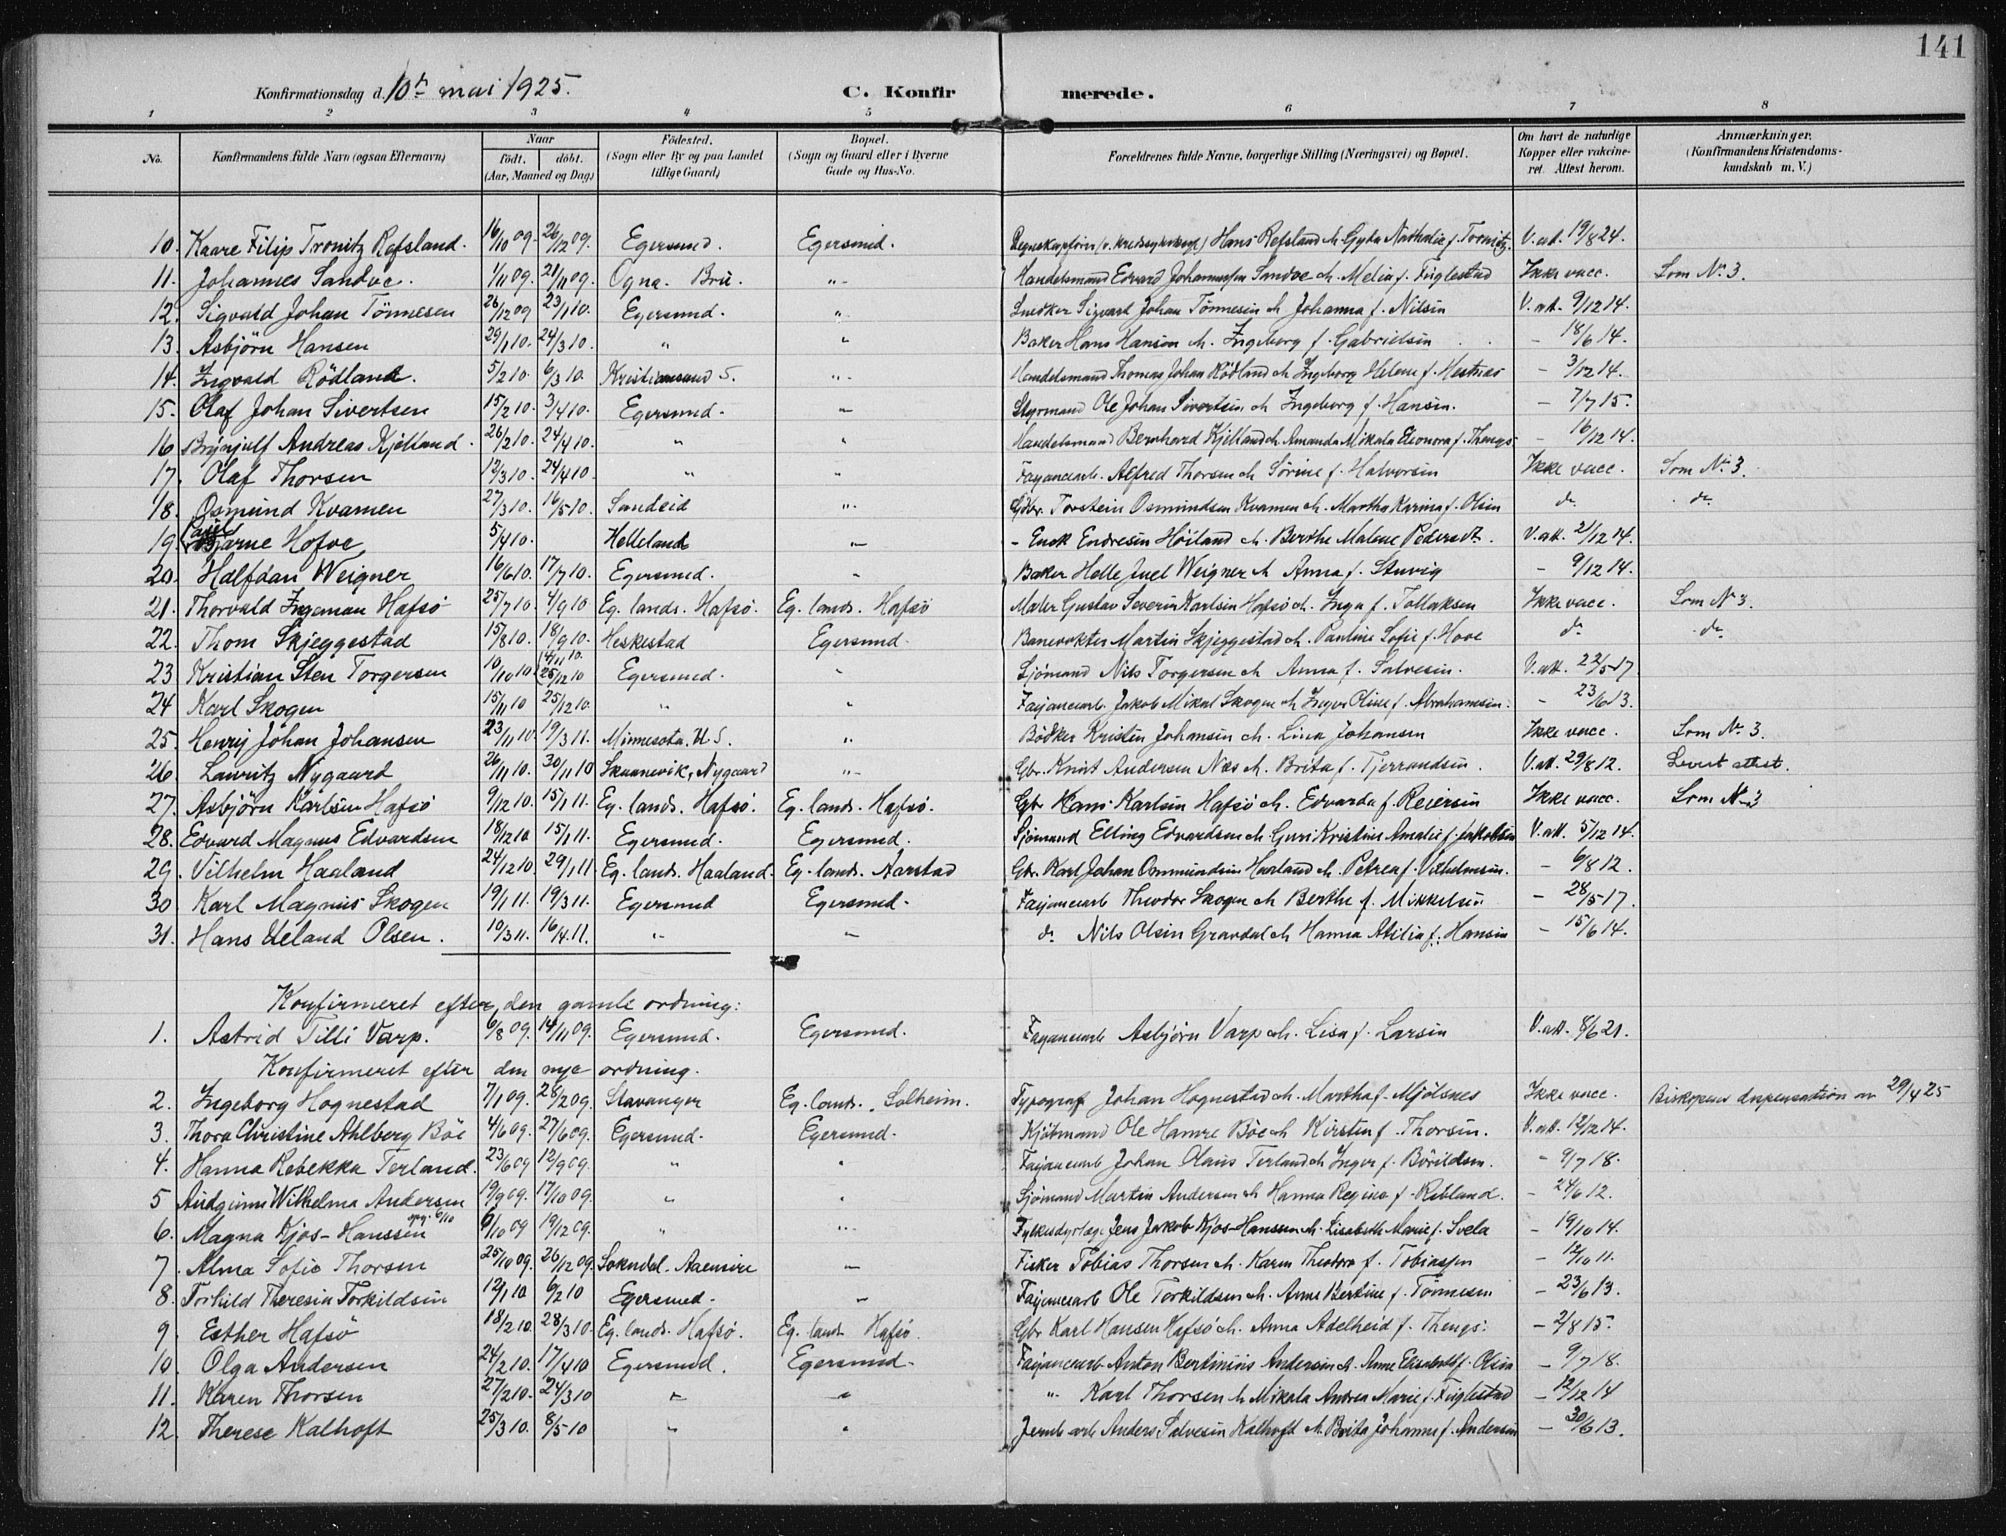 141
Konfirmationsdag d. 10de mai 1925.
C. Konfirmerede.
1 2 3 4 5 6 7 8
No. Konfirmandens fulde Navn (ogsaa Efternavn) Naar födt. döbt. (Aar, Maaned og Dag) Födested. (Sogn eller By og paa Landet tillige Gaard) Bopæl. (Sogn og Gaard eller i Byerne Gade og Hus-No. Forældrenes fulde Navne, borgerlige Stilling (Næringsvei) og Bopæl. Om havt de naturlige Kopper eller vakcineret. Attest herom. Anmærkninger. (Konfirmandens Kristendomskundskab m. V.)
10. Kaare Filip Tronitz Refsland. 16/10 09. 26/12 09. Egersund. Egersund. Hans Refsland & Gyda Nathalie f. Tronitz. V. att. 19/8 24.
11. Johannes Sandve. 1/11 09. 21/11 09. Ogna. Bru. " Handelsmand Edvard Johannessen Sandve & Melia f. Fuglestad Ikke vacc. Som No 3.
12. Sigvald Johan Tönnesen 26/12 09 23/1 10. Egersund. " Snedker Sigvard Johan Tönnesen & Johanna f. Nilsen V. att. 9/12 14.
13. Asbjörn Hansen 29/1 10. 24/3 10. " " Baker Hans Hansen & Ingeborg f. Gabrielsen - 18/6 14.
14. Ingvald Rödland. 5/2 10. 6/3 10. Kristiansand S. " Handelsmand Thomas Johan Rödland & Ingeborg Helene f. Hestnes - 3/12 14.
15. Olaf Johan Sivertsen 15/2 10. 3/4 10. Egersund. " Styrmand Ole Johan Sivertsen & Ingeborg f. Hansen. - 7/7 15.
16 Brynjulf Andreas Kjelland. 26/2 10. 24/4 10. " " Handelsmand Bernhard Kjelland & Amanda Mikala Eleonora f. Thengs - 16/12 14.
17. Olaf Thorsen 12/3 10. 24/4 10. " " Fajancearb. Alfred Thorsen & Sörine f. Halvorsen Ikke vacc. Som No 3.
18. Osmund Kvamen 27/3 10. 16/5 10. Sandeid " Gbr. Torstein Osmundsen Kvamen & Martha Karina f. Olsen do do
19 Bjarne Hofve 5/4 10. Helleland " - Enok Endresen Höiland & Berthe Malene Pedersdt. V. att. 2/12 14.
20. Halfdan Weigner 16/6 10. 17/7 10. Egersund. " Baker Helle Juel Weigner & Anna f. Stuvig - 9/12 14.
21. Thorvald Ingeman Hafsö 25/7 10. 4/9 10. Eg. lands. Hafsö. Eg. lands. Hafsö Maler Gustav Severin Karlsen Hafsö & Inga f. Tollaksen Ikke vacc. Som No 3.
22. Thom Skjeggestad 15/8 10. 18/9 10. Heskestad Egersund. Banevokter Martin Skjeggestad & Pauline Sofie f. Hove do do
23 Kristian Sten Torgersen 10/10 10. 14/11 10. 25/12 10 Egersund. " Sjömand Nils Torgersen & Anna f. Salvesen. V. att. 22/5 17
24 Karl Skogen 15/11 10 25/12 10. " " Fajancearb Jakob Mikal Skogen & Inger Oline f. Abrahamsen. - 23/6 13.
25. Henry Johan Johansen 23/11 10. 19/3 11. Minnesota, U. S. " Bödker Kristen Johansen & Lina Johansen Ikke vacc. Som No 3.
26 Lauritz Nygaard 26/11 10. 30/11 10 Skaanevik, Nygaard " Gbr. Knut Andersen Næs & Brita f. Tjerrandsen. V. att. 29/8 12. Levert attest.
27. Asbjörn Karlsen Hafsö 9/12 10. 15/1 11. Eg. lands. Hafsö. Eg. lands. Hafsö. Gbr Hans Karlsen Hafsö & Edvarda f. Reiersen Ikke vacc. Som No 3
28. Edvard Magnus Edvardsen 18/12 10. 15/1 11. Egersund. Egersund. Sjömand Elling Edvardsen & Guri Kristine Amalie f. Jakobsen V. att. 5/12 14.
29. Vilhelm Haaland 24/12 10. 29/1 11. Eg. lands. Haaland. Eg. lands. Aarstad Gbr. Karl Johan Osmundsen Haaland & Petrea f. Vilhelmsen. - 6/8 12.
30. Karl Magnus Skogen 19/1 11. 19/3 11. Egersund Egersund. Fajancearb Theodor Skogen & Berthe f. Mikkelsen - 28/5 17.
31. Hans Ueland Olsen. 10/3 11. 16/4 11. " " do Nils Olsen Gravdal & Hanna Atilia f. Hansen - 15/6 14.
Konfirmeret efter den gamle ordning:
1. Astrid Tilli Varp. 6/8 09. 14/11 09. Egersund. Egersund. Fajancearb Asbjörn Varp & Lisa f. Larsen V. att. 8/6 21.
Konfirmeret efter den nye ordning.
2. Ingeborg Hognestad 7/1 09. 28/2 09. Stavanger Eg. lands. Solheim. Typograf Johan Hognestad & Martha f. Mjölsnes Ikke vacc. Biskopens dispensation av 29/4 25
3. Thora Christine Ahlberg Böe 4/6 09. 27/6 09. Egersund. Egersund. Kjöbmand Ole Hamre Böe & Kirsten f. Thorsen. V. att. 12/12 14.
4. Hanna Rebekka Terland. 23/6 09 12/9 09. " " Fajancearb Johan Olaus Terland & Inger f. Börildsen. - 9/7 18.
5 Audgunn Wilhelma Andersen 19/9 09. 17/10 09. " " Sjömand Martin Andersen & Hanna Regine f. Rebland. - 24/6 12.
6. Magna Kjös-Hanssen 6/10 09 19/12 09. " " Fylkesdyrlæge Jens Jakob Kjos-Hanssen & Lisabeth Marie f. Svela - 19/10 14.
7. Alma Sofie Thorsen 25/10 09. 26/12 09. Sokndal. Aaensire " Fisker Tobias Thorsen & Karen Theodora f. Tobiassen - 12/10 11.
8. Torhild Theresia Torkildsen 12/1 10. 6/2 10 Egersund. " Fajancearb Ole Torkildsen & Anne Bertine f. Tönnesen - 23/6 13.
9. Esther Hafsö 18/2 10. 28/3 10. Eg. lands. Hafsö. Eg. lands Hafsö. Gbr Karl Hansen Hafsö & Anna Adelheid f. Thengs. - 2/8 15.
10. Olga Andersen 24/2 10. 17/4 10 Egersund. Egersund. Fajancearb Anton Bertinius Andersen & Anne Elisabeth f. Olsen - 9/7 18.
11. Karen Thorsen 27/2 10. 24/3 10 " " " Karl Thorsen & Mikala Andrea Marie f. Fuglestad - 12/12 14
12. Therese Kalhoft 25/3 10. 8/5 10 " " Jernb arb Anders Salvesen Kalhoft & Brita Johanne f. Andersen - 30/6 13.